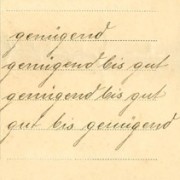 genügend
genügend bis gut
genügend bis gut
gut bis genügend